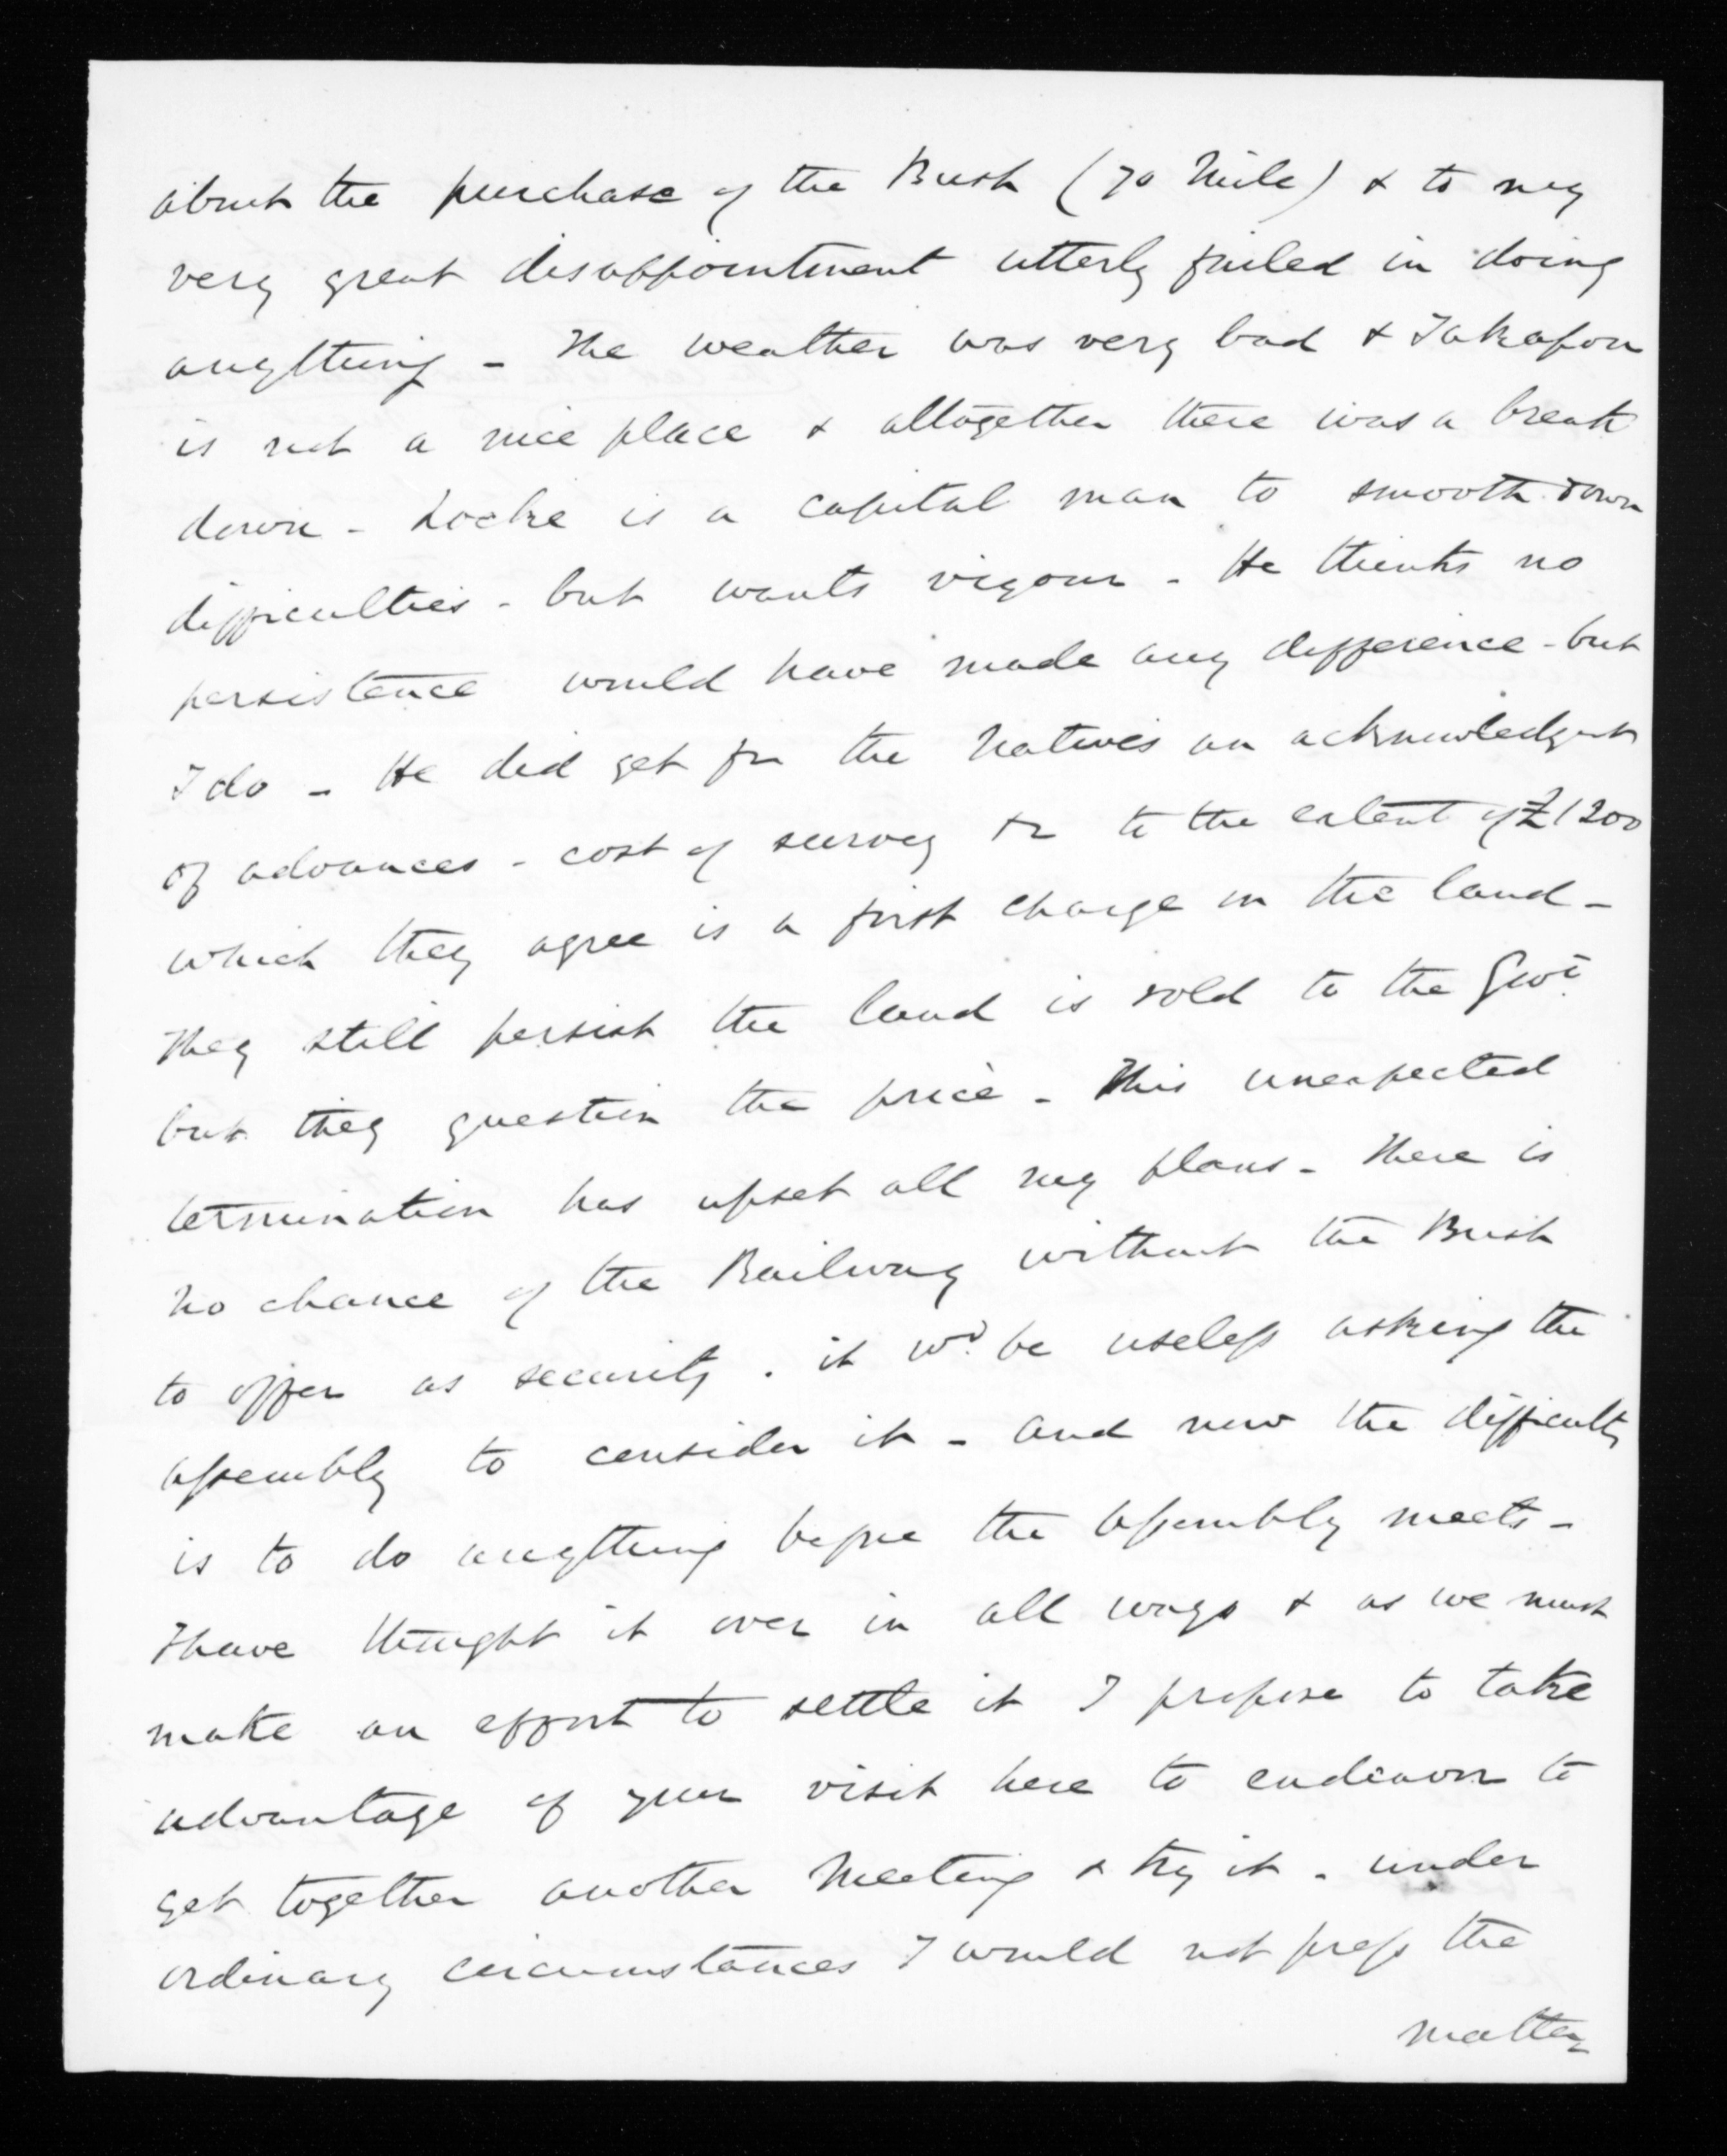 about the purchase of the Bush (70 Mile) & to my
very great disappointment utterly failed in doing
anything - The weather was very bad & Takapau
is not a nice place & altogether there was a break
down - Locke is a capital man to smooth down
difficulties - but wants vigour - He thinks no
persistence would have made any difference - but
I do - He did get fm the Natives an acknowledgmt
of advances - cost of survey &c to the extent of £1200
which they agree is a first charge on the land -
They still persist the land is sold to the Govt
but they question the price - This unexpected
termination has upset all my plans - There is
no chance of the Railway without the Bush
to offer as security . it wd be useless asking the
Assembly to consider it - and now the difficulty
is to do anything before the Assembly meets -
I have thought it over in all ways & as we must
make an effort to settle it I propose to take
advantage of your visit here to endeavor to
get together another Meeting & try it - under
ordinary circumstances I would not press the
matter